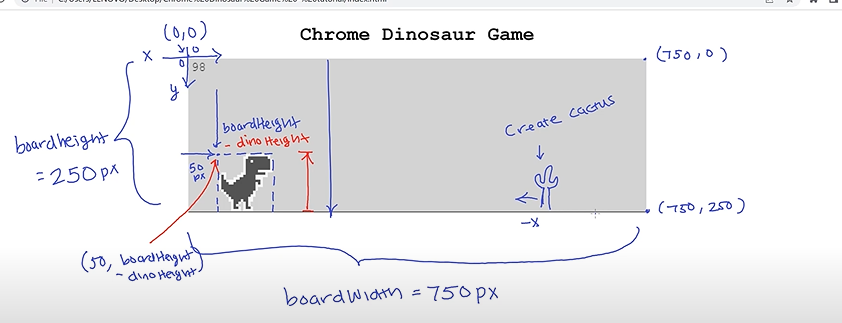 C:/Users/LENOVO/Desktop/Chrome%20Dinosaur%20Game%20
tutorial/index.html
(0,0)
Chrome Dinosaur Game
X
0
0
98
y
(750,0)
boardheight
= 250px
boardHeight
- dinoHeight
Create cactus
50
px
-x
(750, 250)
(50, boardHeight
- dinoHeight)
boardWidth = 750px